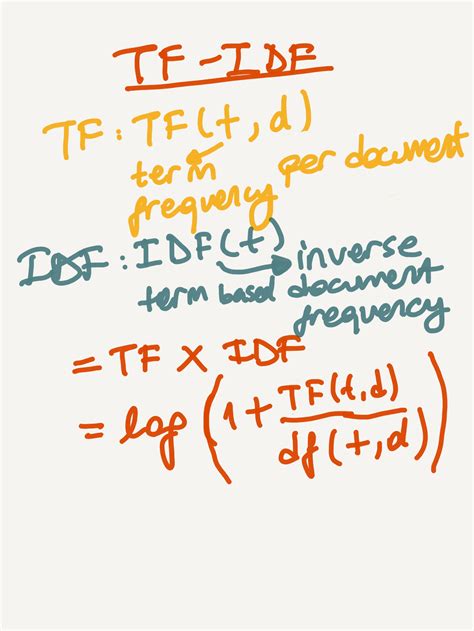 TF-IDF
TF: TF(t,d)
term per document
frequency
IDF: IDF(t) inverse
term based document
frequency
= TF x IDF
= log (1 + TF(t,d) / df(t,d))